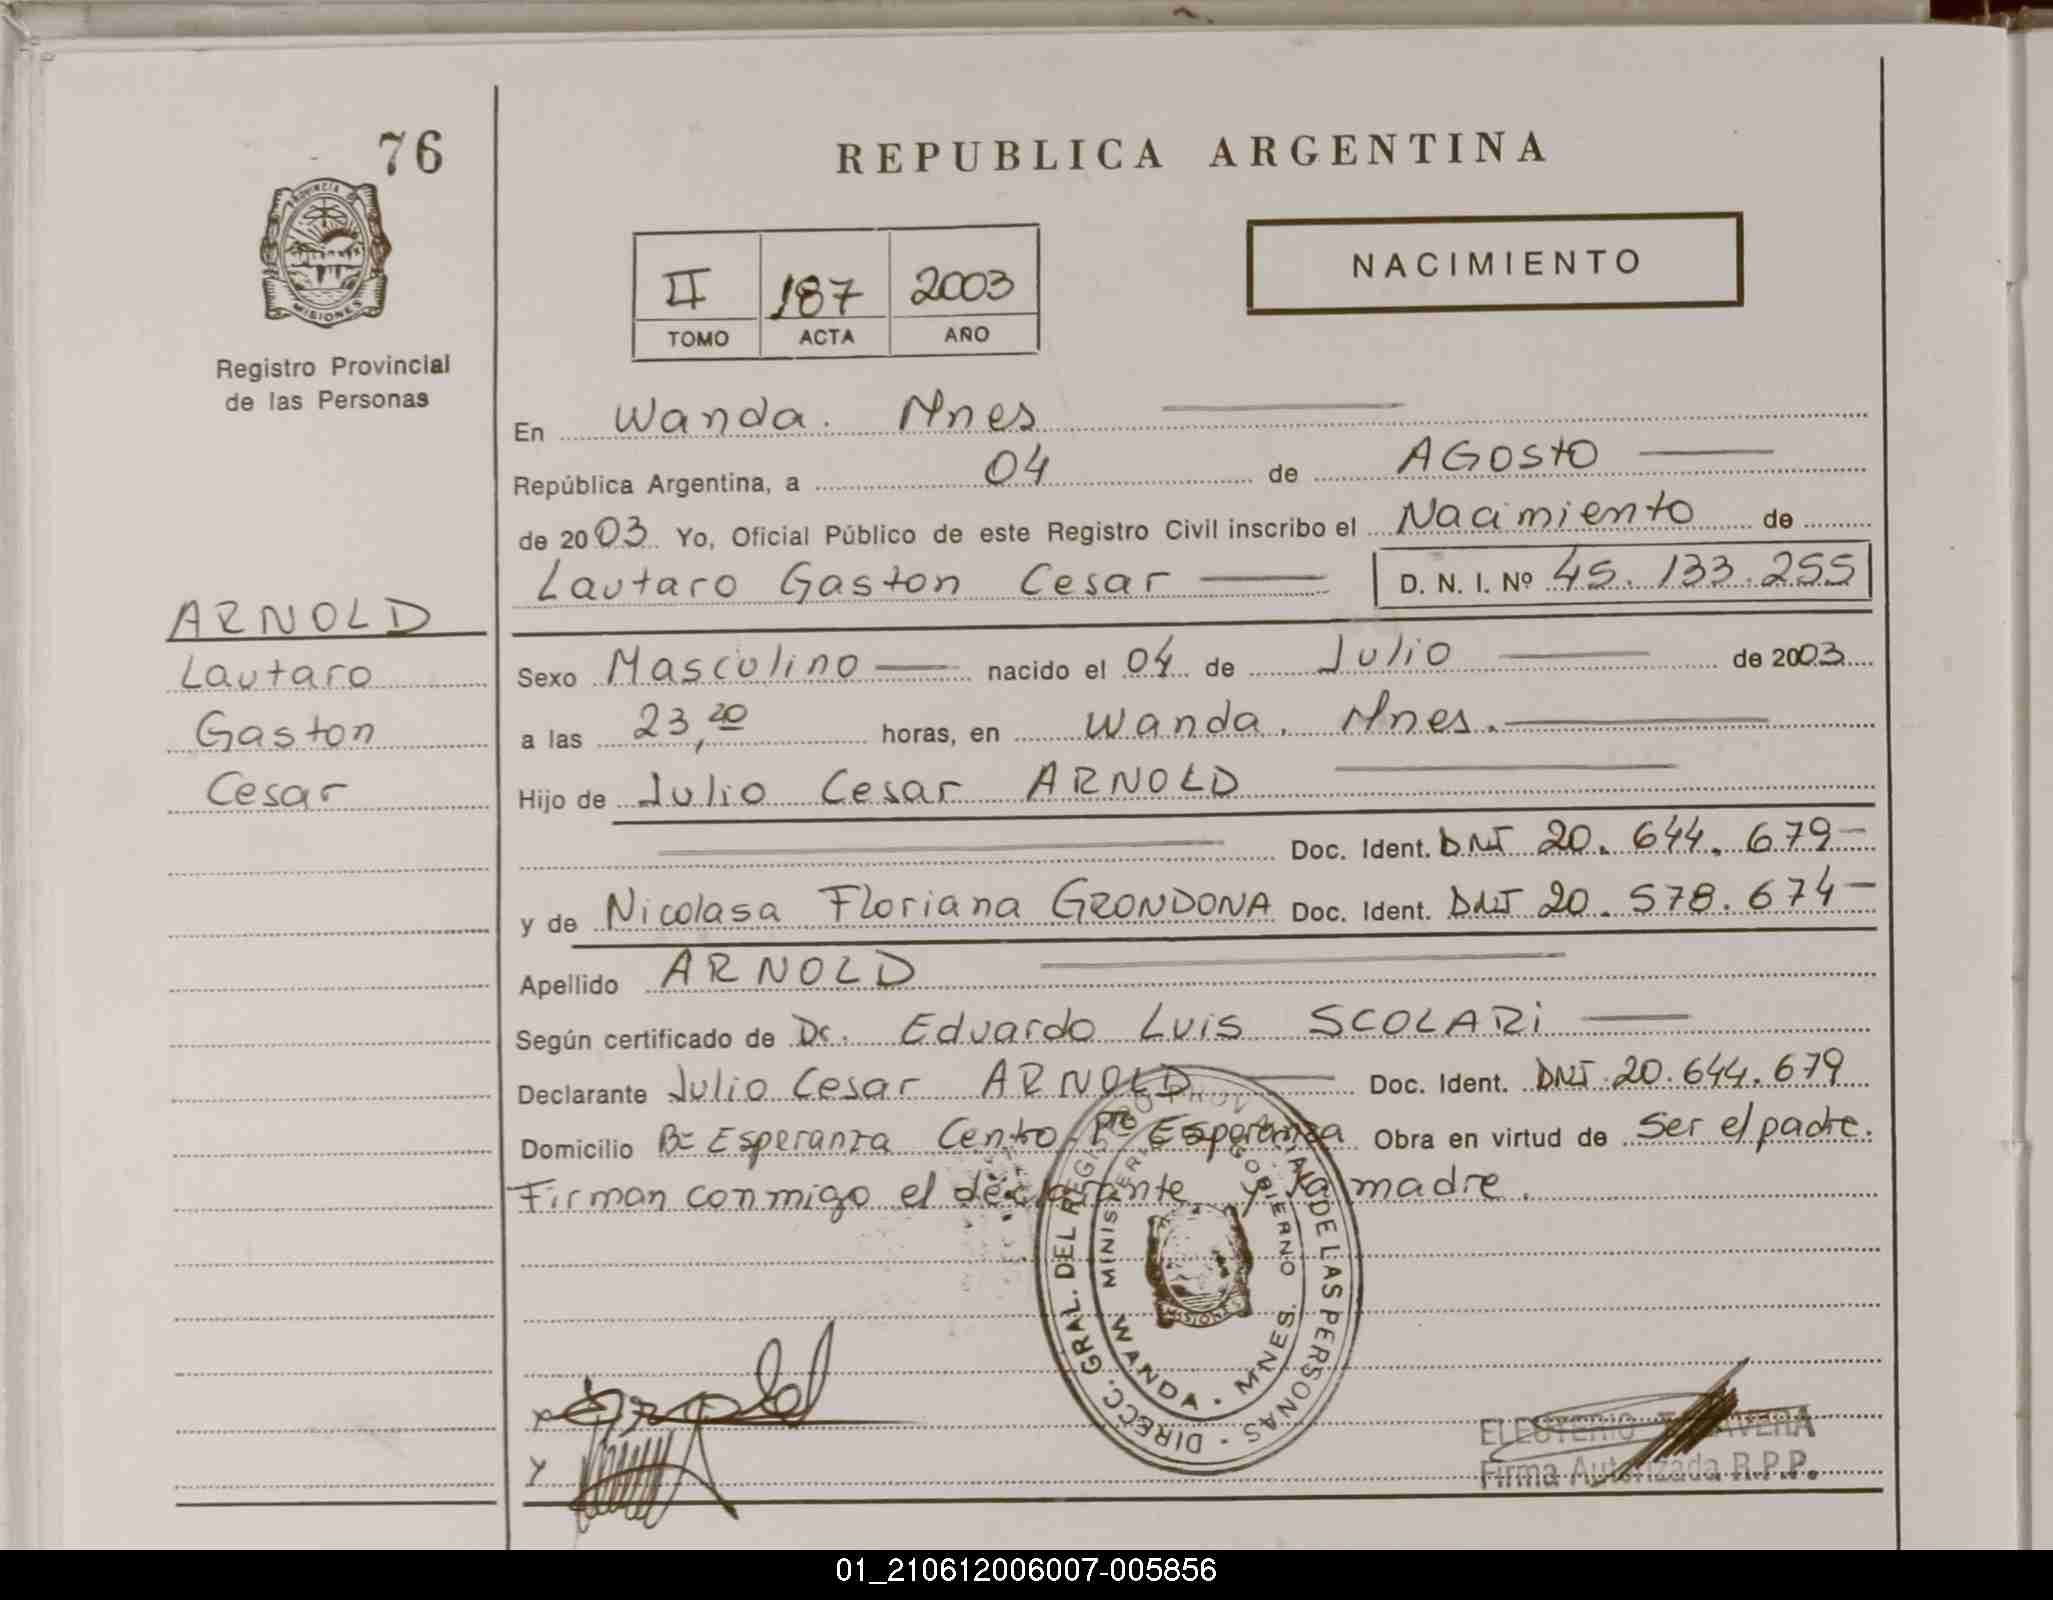 76
REPUBLICA ARGENTINA
PROVINCIA DE
MISIONES
Registro Provincial
de las Personas
NACIMIENTO
II 187 2003
TOMO ACTA AÑO
En Wanda. Mnes
República Argentina, a 04 de AGOSTO
de 2003 Yo, Oficial Público de este Registro Civil inscribo el Nacimiento de
Lautaro Gaston Cesar D. N. I. Nº 45.133.255
ARNOLD
Lautaro
Gaston
Cesar
Sexo Masculino nacido el 04 de Julio de 2003
a las 23,20 horas, en Wanda. Mnes.
Hijo de Julio Cesar ARNOLD
Doc. Ident. DNI 20.644.679
y de Nicolasa Floriana GRONDONA Doc. Ident. DNI 20.578.674
Apellido ARNOLD
Según certificado de Dr. Eduardo Luis SCOLARi
Declarante Julio Cesar ARNOLD Doc. Ident. DNI 20.644.679
Domicilio Bº Esperanza Centro Pto Esperanza Obra en virtud de Ser el padre.
Firman conmigo el declarante y la madre.
DIRECC. GRAL. DEL REGISTRO PROVINCIAL DE LAS PERSONAS
MINISTERIO GOBIERNO
MISIONES
WANDA - MNES.
ELEUTERIO TALAVERA
Firma Autorizada R.P.P.
01_210612006007-005856